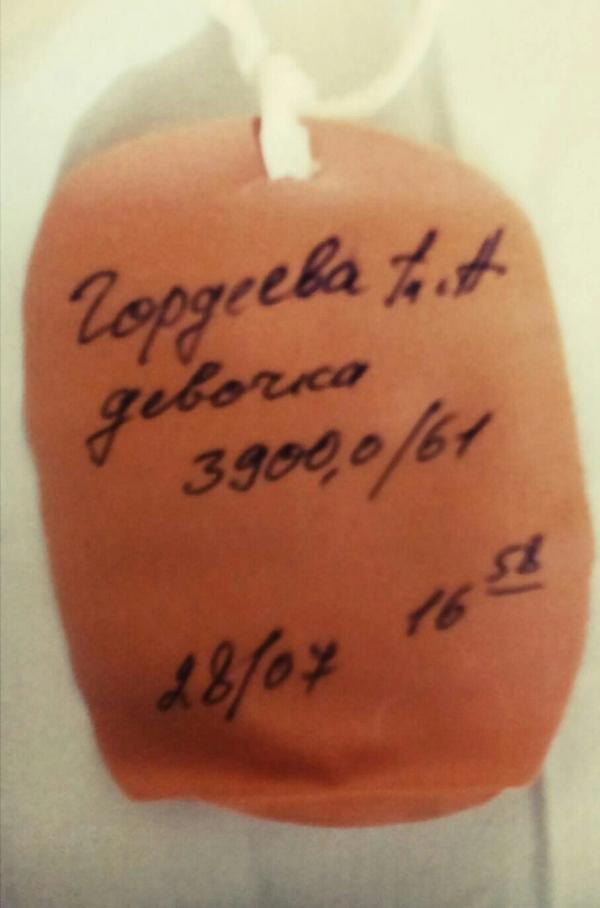 Гордеева
девочка
3900,0/61
16 58
28/07